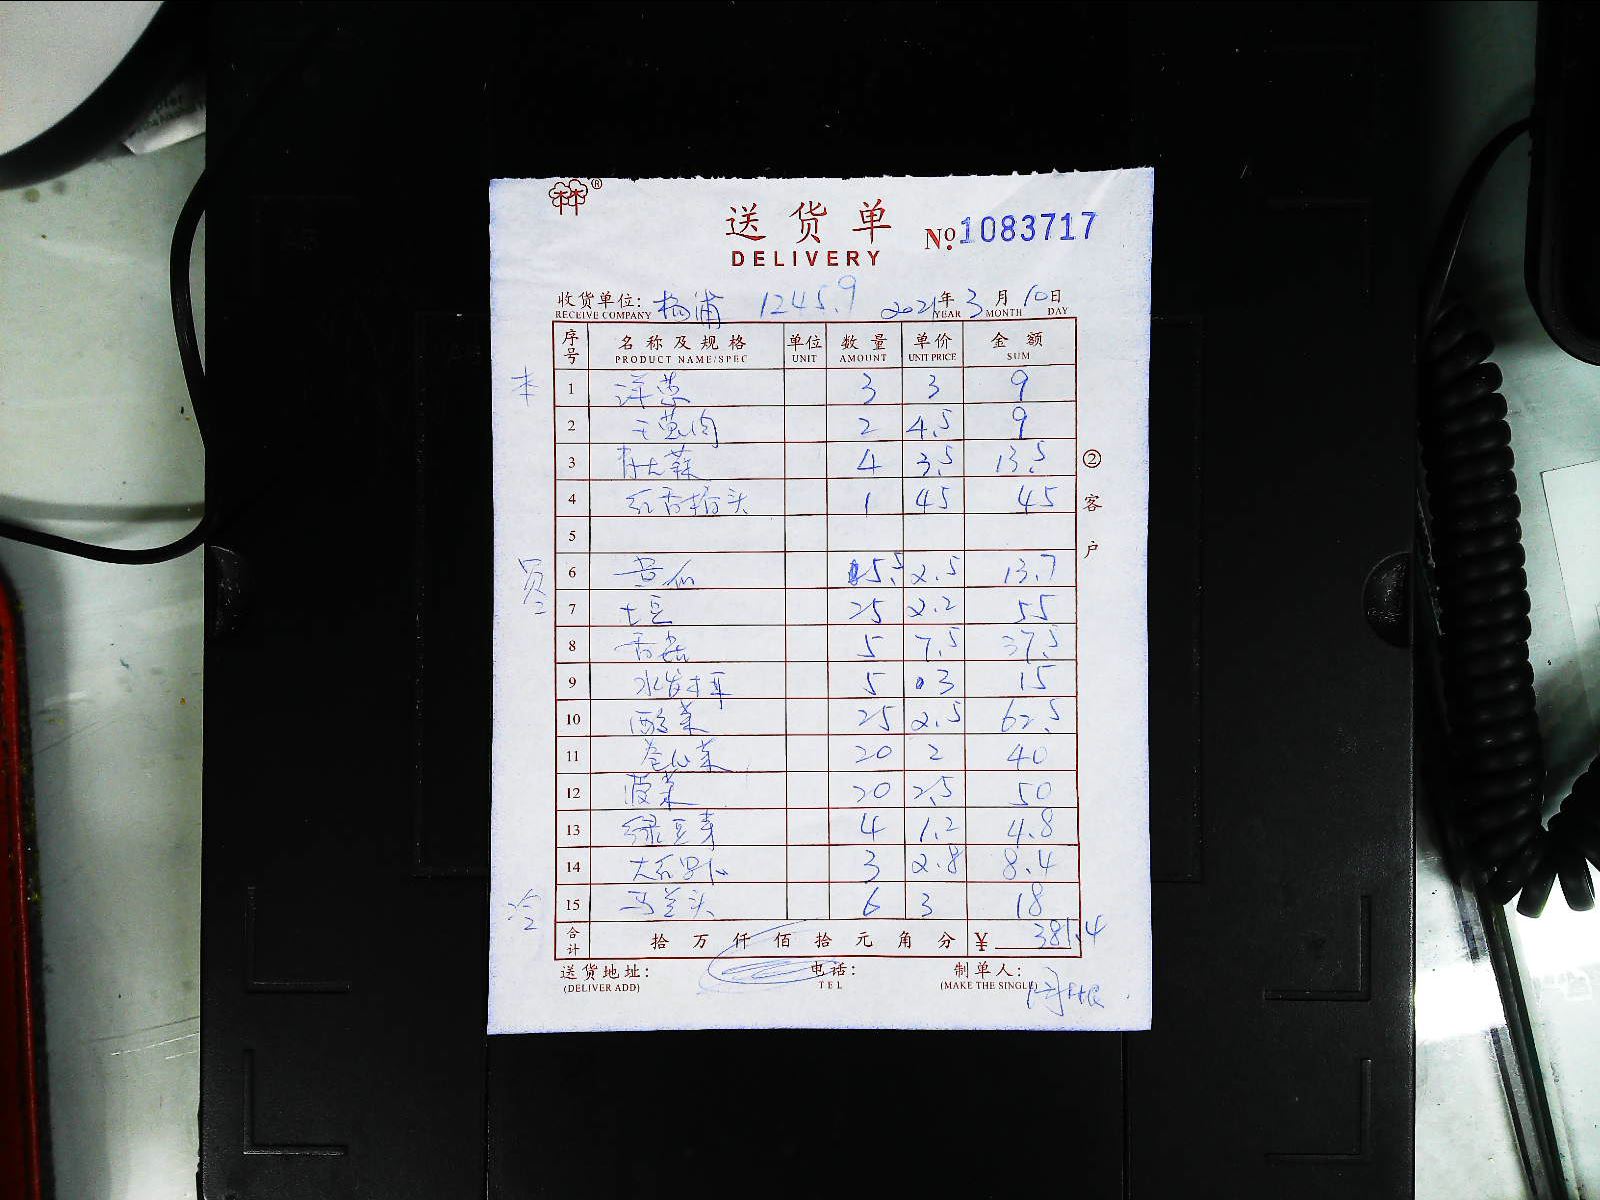 送货单
DELIVERY
№ 1083717
收货单位: 杨浦 1245.9 2021年 3月 10日
RECEIVE COMPANY YEAR MONTH DAY
序号 名称及规格 单位 数量 单价 金额
PRODUCT NAME/SPEC UNIT AMOUNT UNIT PRICE SUM
本 1 洋葱 3 3 9
2 2 4.5 9
3 4 3.5 13.5
4 1 45 45
5
6 黄瓜 5.5 2.5 13.7
7 土豆 25 2.2 55
8 香菇 5 7.5 37.5
9 水发木耳 5 3 15
10 酸菜 25 2.5 62.5
11 包心菜 20 2 40
12 菠菜 20 2.5 50
13 绿豆芽 4 1.2 4.8
14 3 2.8 8.4
冷 15 马兰头 6 3 18
合计 拾万仟佰拾元角分 ¥ 381.4
送货地址: 电话: 制单人:
(DELIVER ADD) TEL (MAKE THE SINGLE)
② 客户